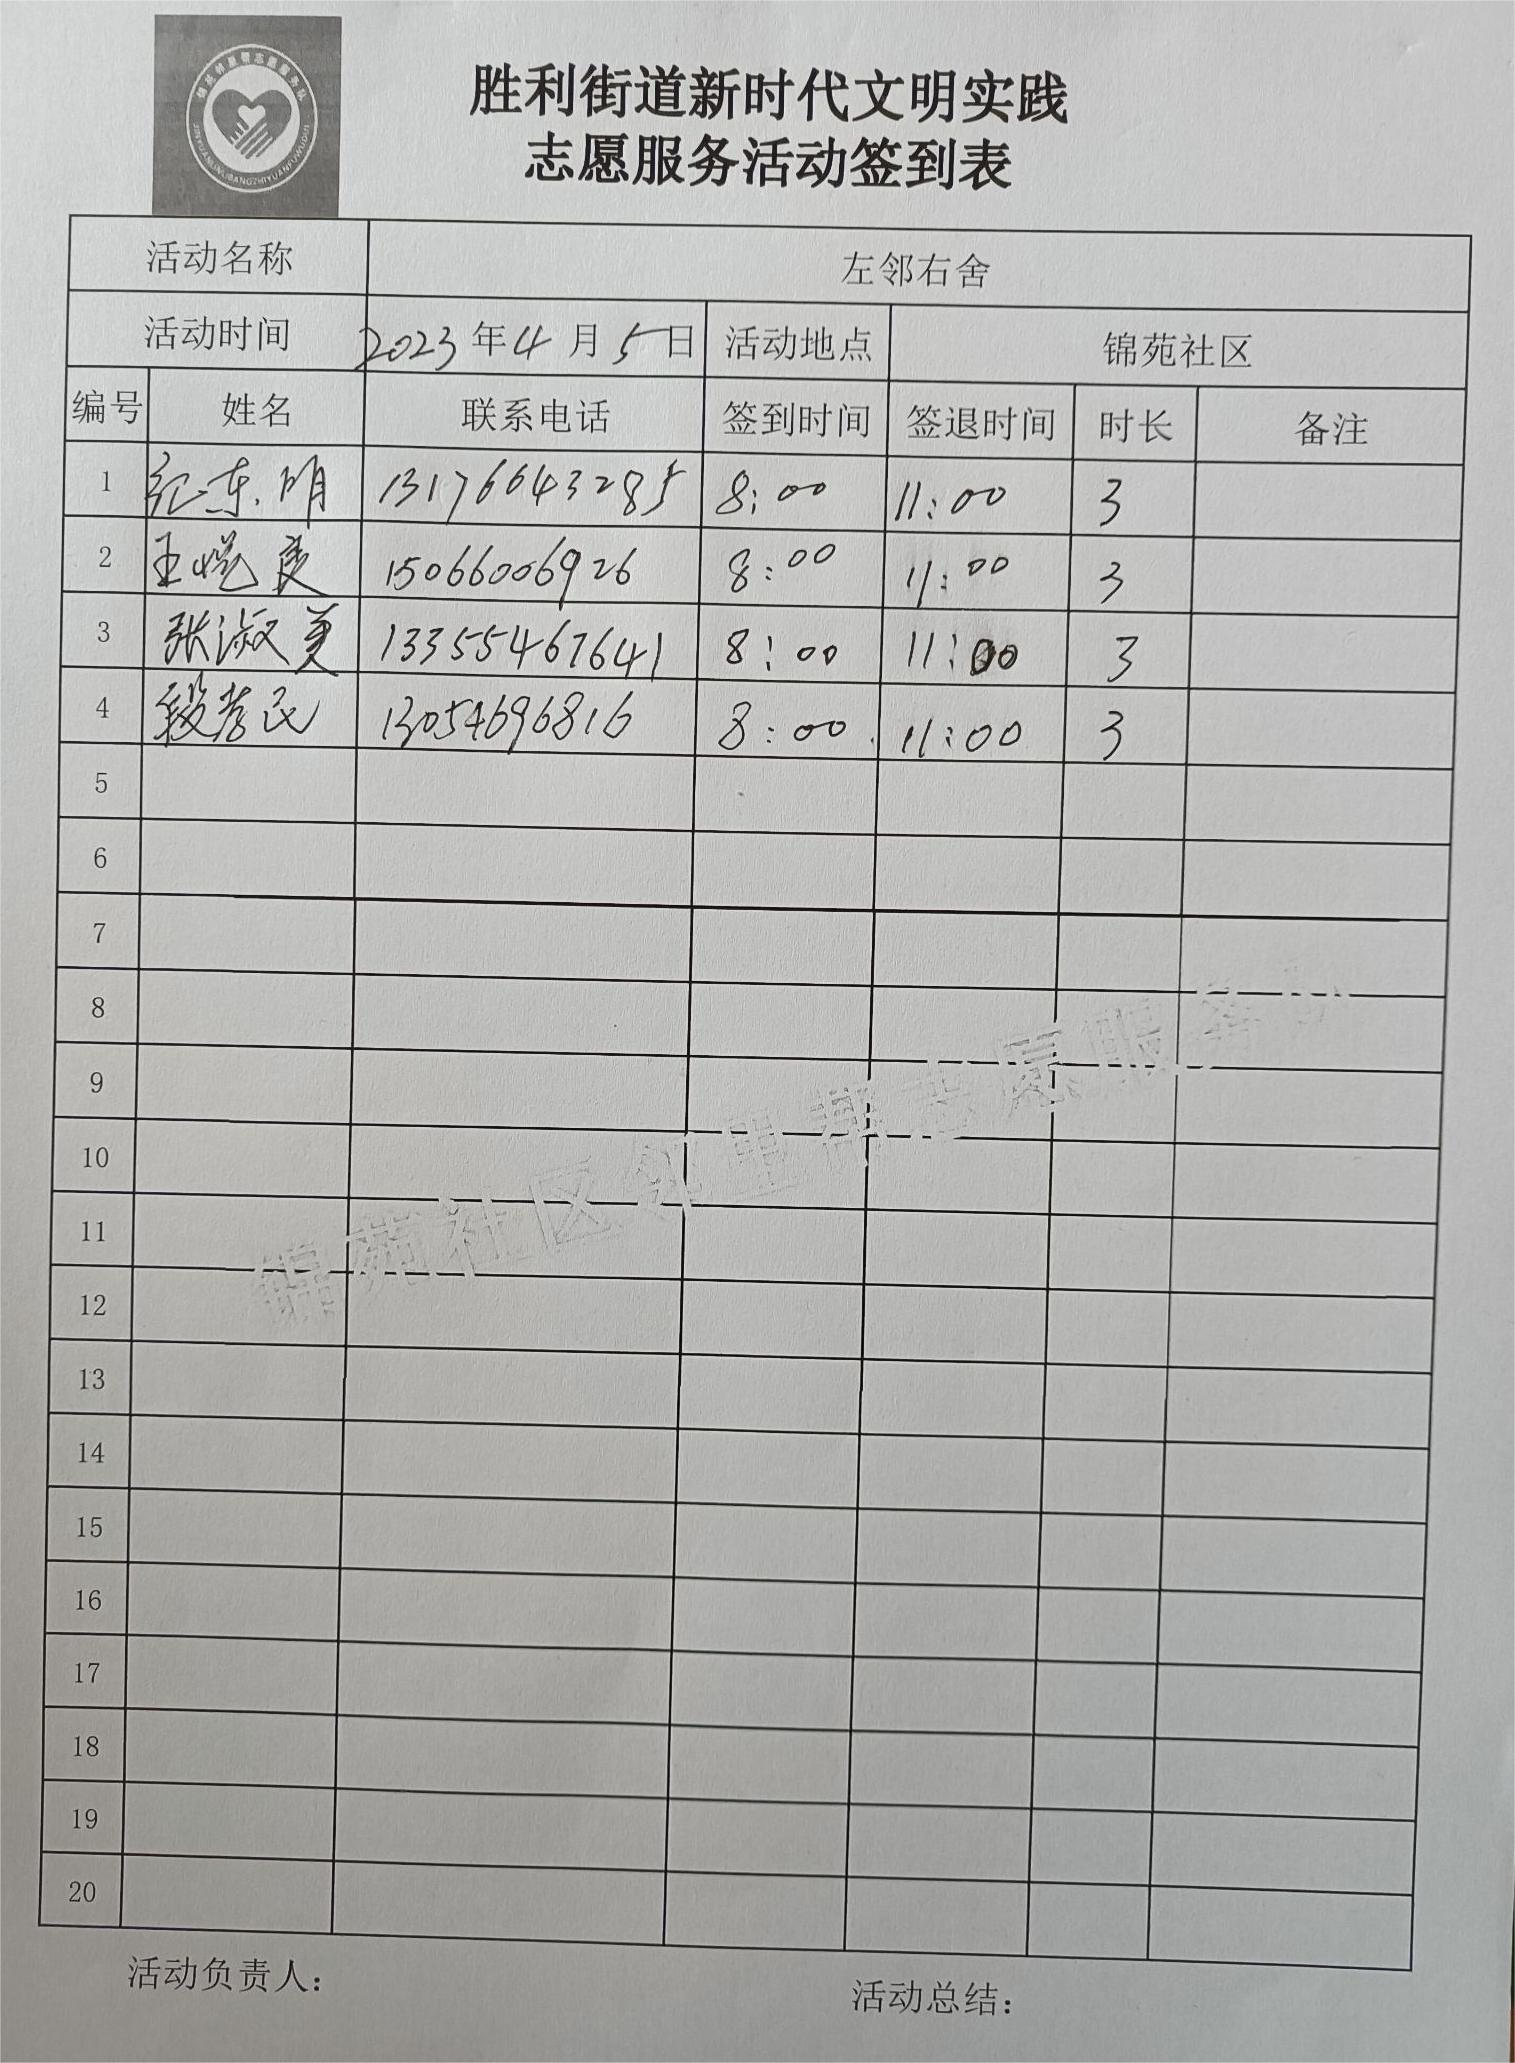 胜利街道新时代文明实践
志愿服务活动签到表
活动名称 左邻右舍
活动时间 2023年4月5日 活动地点 锦苑社区
编号 姓名 联系电话 签到时间 签退时间 时长 备注
1 纪东明 13176643285 8:00 11:00 3
2 王 15066006926 8:00 11:00 3
3 张淑美 13355467641 8:00 11:00 3
4 段孝民 13054696816 8:00 11:00 3
5
6
7
8
9
10
11
12
13
14
15
16
17
18
19
20
锦苑社区邻里帮志愿服务队
活动负责人：
活动总结：